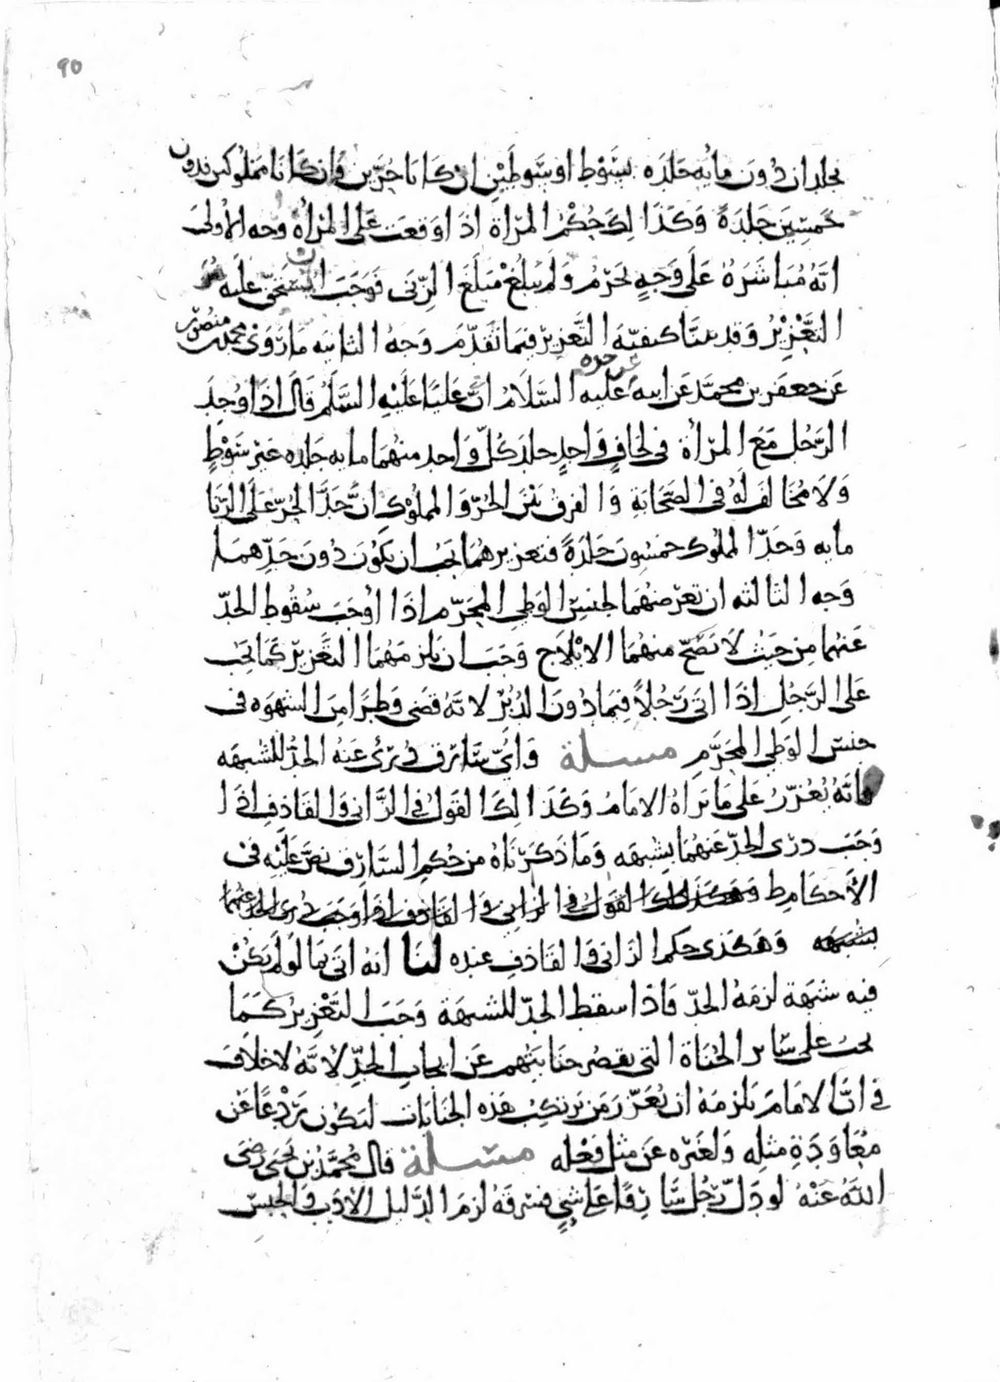 ٩٥
يجلدان دون مائه جلده بسَوْطٍ او سَّوطَيْنِ ان كانا حُرَّين وَان كَانا مملُوكين فدون
خَمسِّين جَلدَةً وَكَذَا لِكَ حُكْمُ المرّاة اذَا اوقعَت عَلى المرْأة وَجه الأولىَ
انّهُ مُبَاشرَهٌ عَلى وَجهٍ محَرّمٍ وَلم يبلُغ مَبلَغ الزّنَى فوَجَبَ ان يسْتحَق عليه
التعْزِيْرُ وَقد بيّنّا كيفيّه التَّعزير فيمَا تقدّمَ وَجهُ الثانيه مَا رَوَىْ محمد بن منصُور
عَن جعفر بن محمَّد عَن ابيه عن جده عليه السّلامُ انّ عَليًا عَليْهِ السَّلَم قالَ اذَا وُجِدَ
الرَّجُل مَعَ المرّأة في لحَافٍ وَاحدٍ جلدَ كُلّ وَاحد منهُمَا مايه جَلده غيْر سَوْطٍ
وَلاَ مُخَالفَ لَهُ في الصَّحَابَةِ وَالفرق بَيْن الحُرّ وَالمملُوك انَّ حَدَّ الحُرّ عَلَى الزّنَا
مايه وَحَدّ المملوك خمسُون جَلدَةً فتعزيرهُمَا يجبُ ان يَكُوْن دُونَ حَدِّهمَا
وَجه الثالثه ان تعرّضهُمَا لجنسِّ الوَطي المحَرّم اذَا اوْجَبَ سُقُوط الحَدّ
عَنهُما مِن حَيْث لاَ تصَحّ منهُمَا الايْلاَج وَجَبَ ان يلزمَهُمَا التعَّزِيرْ كمَا يجَب
عَلى الرّجُل اذَا اتى رَجُلاً فيمَا دُونَ الدُبُرْ لانّهُ قضَى وَطرًا مِنَ الشهوَه في
جنسّ الوَطي المحَرَّمِ مسئلة وَأيّ سَّارق دُرِئ عَنهُ الحَدُّ للشبهَه
فانّهُ يُعَزَّرُ عَلى مَا يَرَاهُ الامَامُ وَكَذَالِكَ القَولُ في الزَّاني وَالقَاذِفِ اذَا
وَجَبَ درْى الحَدّ عَنهُمَا بشبهَه وَمَا ذكَرْنَاهُ من حُكمِ السّارق نصَّ عَليْهِ في
الأحكامِ ط وَهكذلك القَولُ في الزاني وَالقاذف اذا وَجَبَ درى الحَد عَنهُمَا
بشبهه وَهَكَذى حكم الزاني وَالقاذف عنده لنَا انه اتى بمَا لَوْلم يَكُنْ
فيه شبهَة لزمَهُ الحَدّ فَاذا سقط الحَدّ للشبهَة وَجَبَ التعْزيرُ كمَا
يجبُ على سَّاير الجُنَاة التي يقصُر جنَايتهم عَن ايجَاب الحَدِّ لانّهُ لاَ خلاَف
في انّ الامَامَ يَلزمهُ ان يُعَزّرَ مَن يرتكِبُ هَذه الجنَايَات ليَكُون رَدْعًا عَن
مُعَاوَدَةِ مثلِهِ وَلغيْرِه عَن مثل فعْله مسئلة قال مُحَمَّدُ بن يحيى رَضيَ
اللهُ عَنْهُ لو دَلّ رَجُل سَّارقًا عَلى شيٍ فسَرقهُ لزمَ الدَّليل الأدَب وَالحبسّ